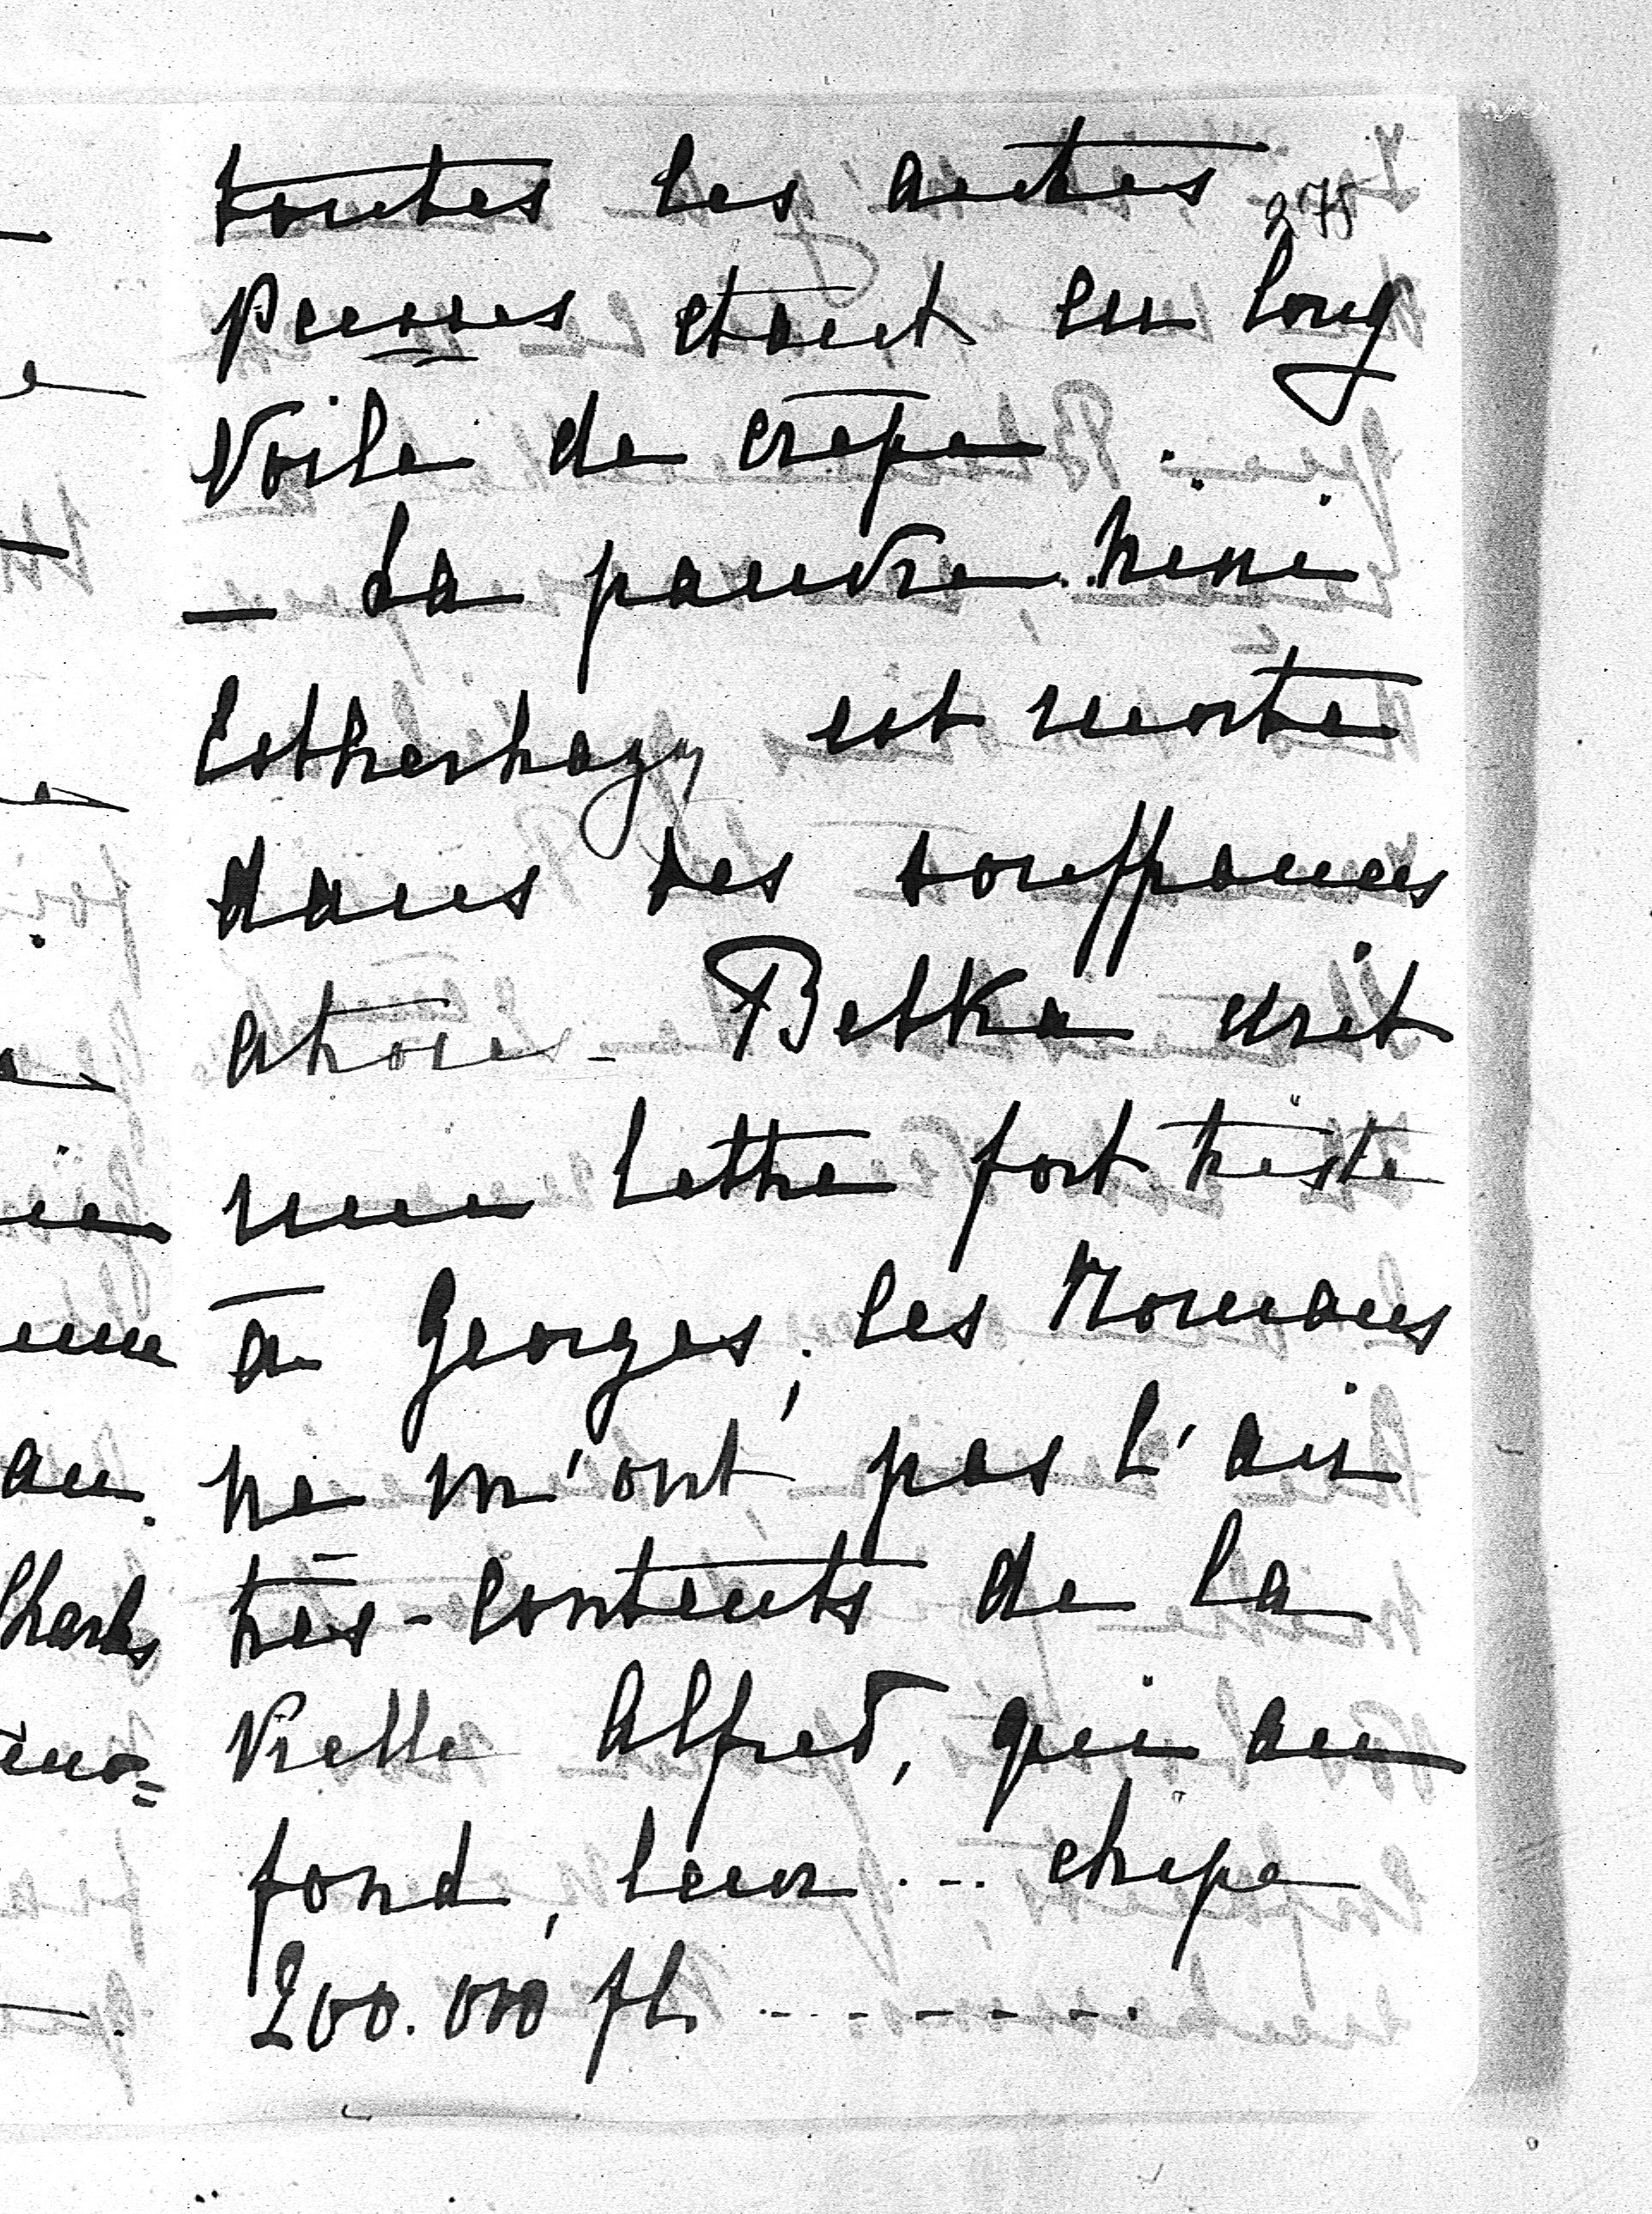 toutes les autres
275
Pcesses etant en long
Voile de crêpe.
— La pauvre Nini
Estherhazy est morte
dans des souffrances
atroces - Betka ecrit
une lettre fort triste
à Georges; les Romans
ne m'ont pas l'air
très-contents de la
Vielle Alfred, qui au
fond, leur... chipe
200.000 fl. -------